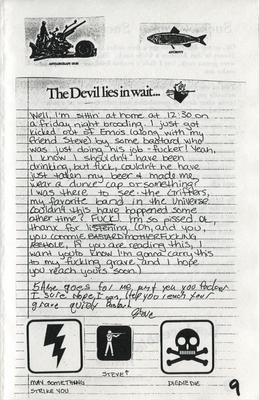 ANTIAIRCRAFT GUN
ANCHOVY
The Devil lies in wait...
Well, I'm sittin' at home at 12:30 on
a friday night brooding. I just got
kicked out of Ernos (along with my
friend Steve) by some bastard who
was just doing his job - fucker! Yeah,
I know I shouldn't have been
drinking, but fuck, couldn't he have
just taken my beer & made me
wear a dunce cap or something?
I was there to see the Critters,
my favorite band in the universe.
Couldn't this have happened some
other time? FUCK! I'm so pissed at
thanx for listening. (Oh, and you,
you commie BASTARD MOTHERFUCKING
ASSHOLE, if you are reading this, I
want you to know I'm gonna carry this
to my fucking grave and I hope
you reach yours soon!
Same goes for me, just you
I sure hope I can help you reach your
grave quickly
Steve
STEVE↑
MAY SOMETHING
STRIKE YOU
DIE DIE DIE
9